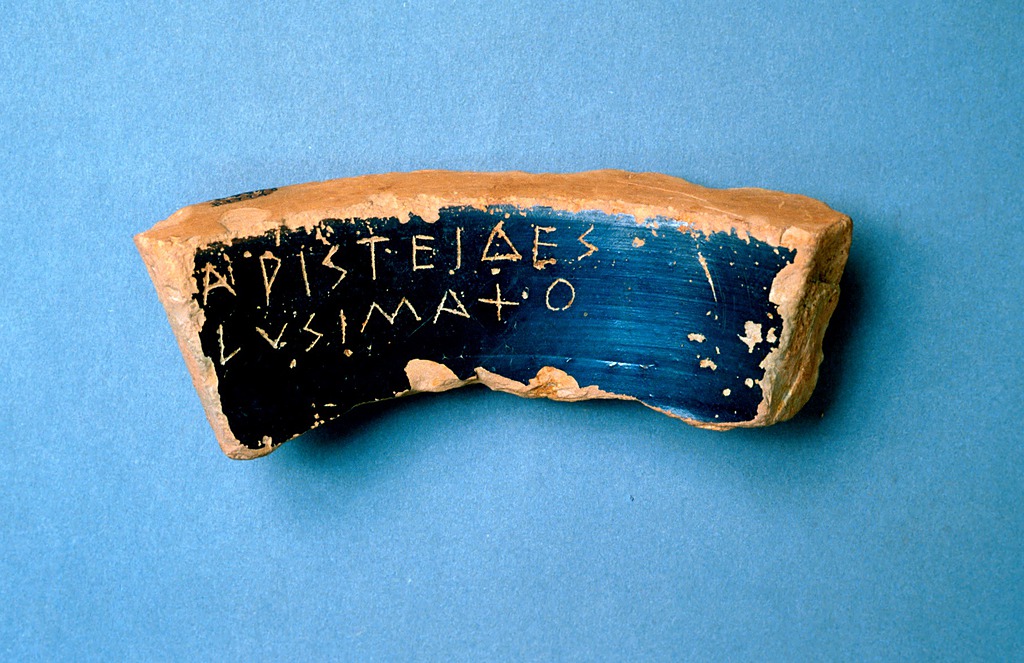 ΑΡΙΣΤΕΙΔΕΣ
ΛΥΣΙΜΑ+Ο